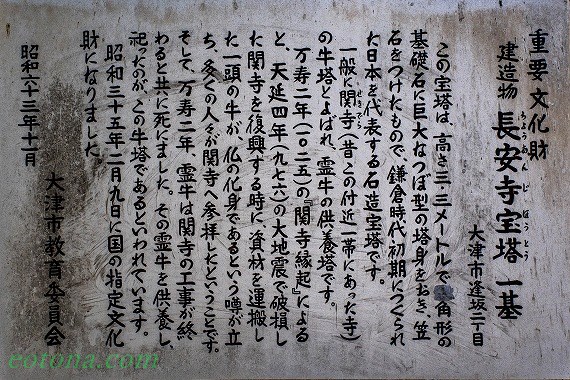 重要文化財
建造物 長安寺宝塔 一基
ちょうあんじほうとう
大津市逢坂二丁目
この宝塔は、高さ三・三メートルで 角形の
基礎石に巨大なつぼ型の塔身をおき、笠
石をつけたもので、鎌倉時代初期につくられ
た日本を代表する石造宝塔です。
一般に関寺(昔この付近一帯にあった寺)
せきでら
の牛塔とよばれ、霊牛の供養塔です。
万寿二年(一〇二五)の『関寺縁起』による
と、天延四年(九七六)の大地震で破損し
た関寺を復興する時に資材を運搬し
た一頭の牛が、仏の化身であるという噂が立
ち、多くの人々が関寺へ参拝したということです。
そして、万寿二年、霊牛は関寺の工事が終
わると共に死にました。その霊牛を供養し、
祀ったのが、この牛塔であるといわれています。
昭和三十五年二月九日に国の指定文化
財になりました。
昭和六十三年十一月
大津市教育委員会
eotona.com